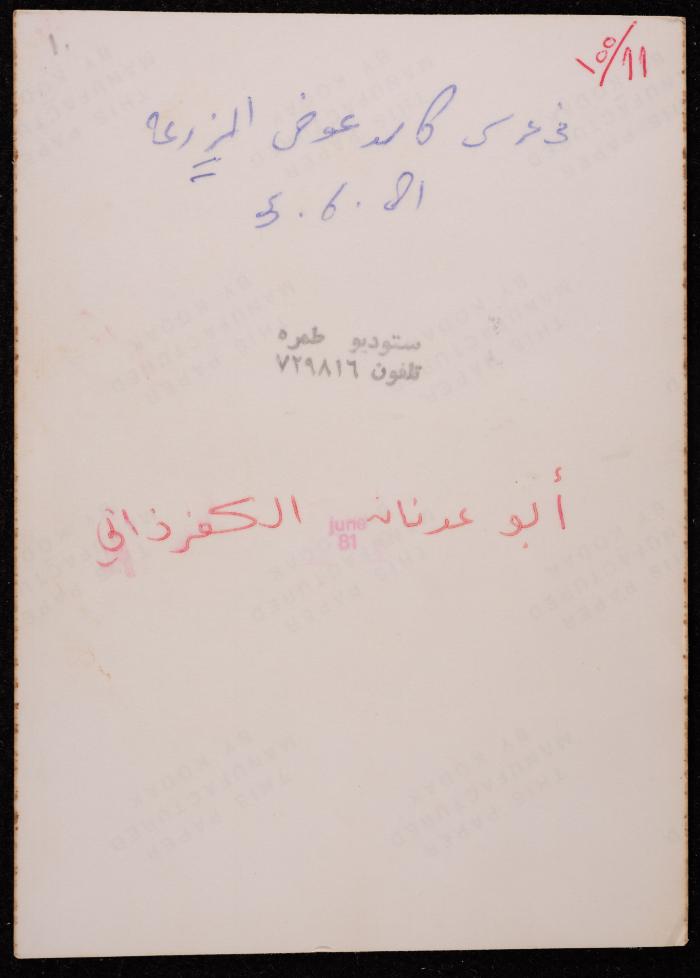 ١٠٠/11
١.
في عرس كامد عوض المزرعة
5.6.81
ستوديو طمره
تلفون ٧٢٩٨١٦
أبو عدنان الكفرذاني
june
81
THIS PAPER
MANUFACTURED
BY KODAK